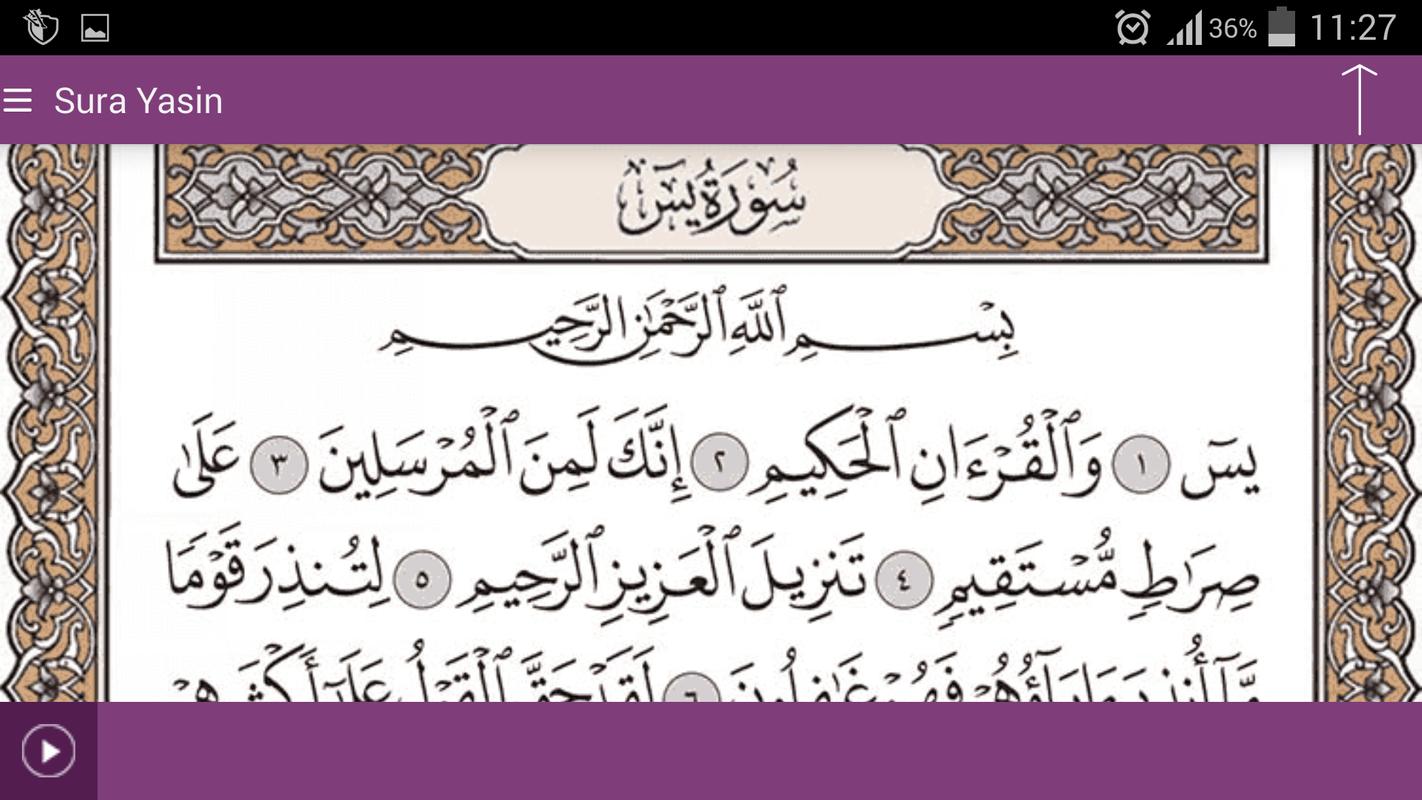 36% 11:27
Sura Yasin
سُورَةُ يسٓ
بِسْمِ ٱللَّهِ ٱلرَّحْمَٰنِ ٱلرَّحِيمِ
يسٓ ١ وَٱلْقُرْءَانِ ٱلْحَكِيمِ ٢ إِنَّكَ لَمِنَ ٱلْمُرْسَلِينَ ٣ عَلَىٰ
صِرَٰطٍ مُّسْتَقِيمٍ ٤ تَنزِيلَ ٱلْعَزِيزِ ٱلرَّحِيمِ ٥ لِتُنذِرَ قَوْمًا
مَّآ أُنذِرَ ءَابَآؤُهُمْ فَهُمْ غَٰفِلُونَ ٦ لَقَدْ حَقَّ ٱلْقَوْلُ عَلَىٰٓ أَكْثَرِهِمْ